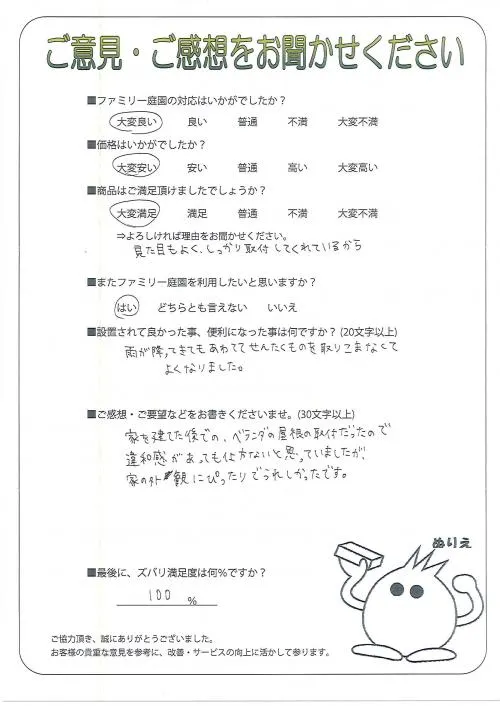 ご意見・ご感想をお聞かせください
■ファミリー庭園の対応はいかがでしたか？
大変良い 良い 普通 不満 大変不満
■価格はいかがでしたか？
大変安い 安い 普通 高い 大変高い
■商品はご満足頂けましたでしょうか？
大変満足 満足 普通 不満 大変不満
⇒よろしければ理由をお聞かせください。
見た目もよく、しっかり取付してくれているから
■またファミリー庭園を利用したいと思いますか？
はい どちらとも言えない いいえ
■設置されて良かった事、便利になった事は何ですか？(20文字以上)
雨が降ってきてもあわててせんたくものを取りこまなくて
よくなりました。
■ご感想・ご要望などをお書きくださいませ。(30文字以上)
家を建てた後での、ベランダの屋根の取付だったので
違和感があっても仕方ないと思っていましたが、
家の外観にぴったりでうれしかったです。
ぬりえ
■最後に、ズバリ満足度は何％ですか？
100 %
ご協力頂き、誠にありがとうございました。
お客様の貴重な意見を参考に、改善・サービスの向上に活かして参ります。